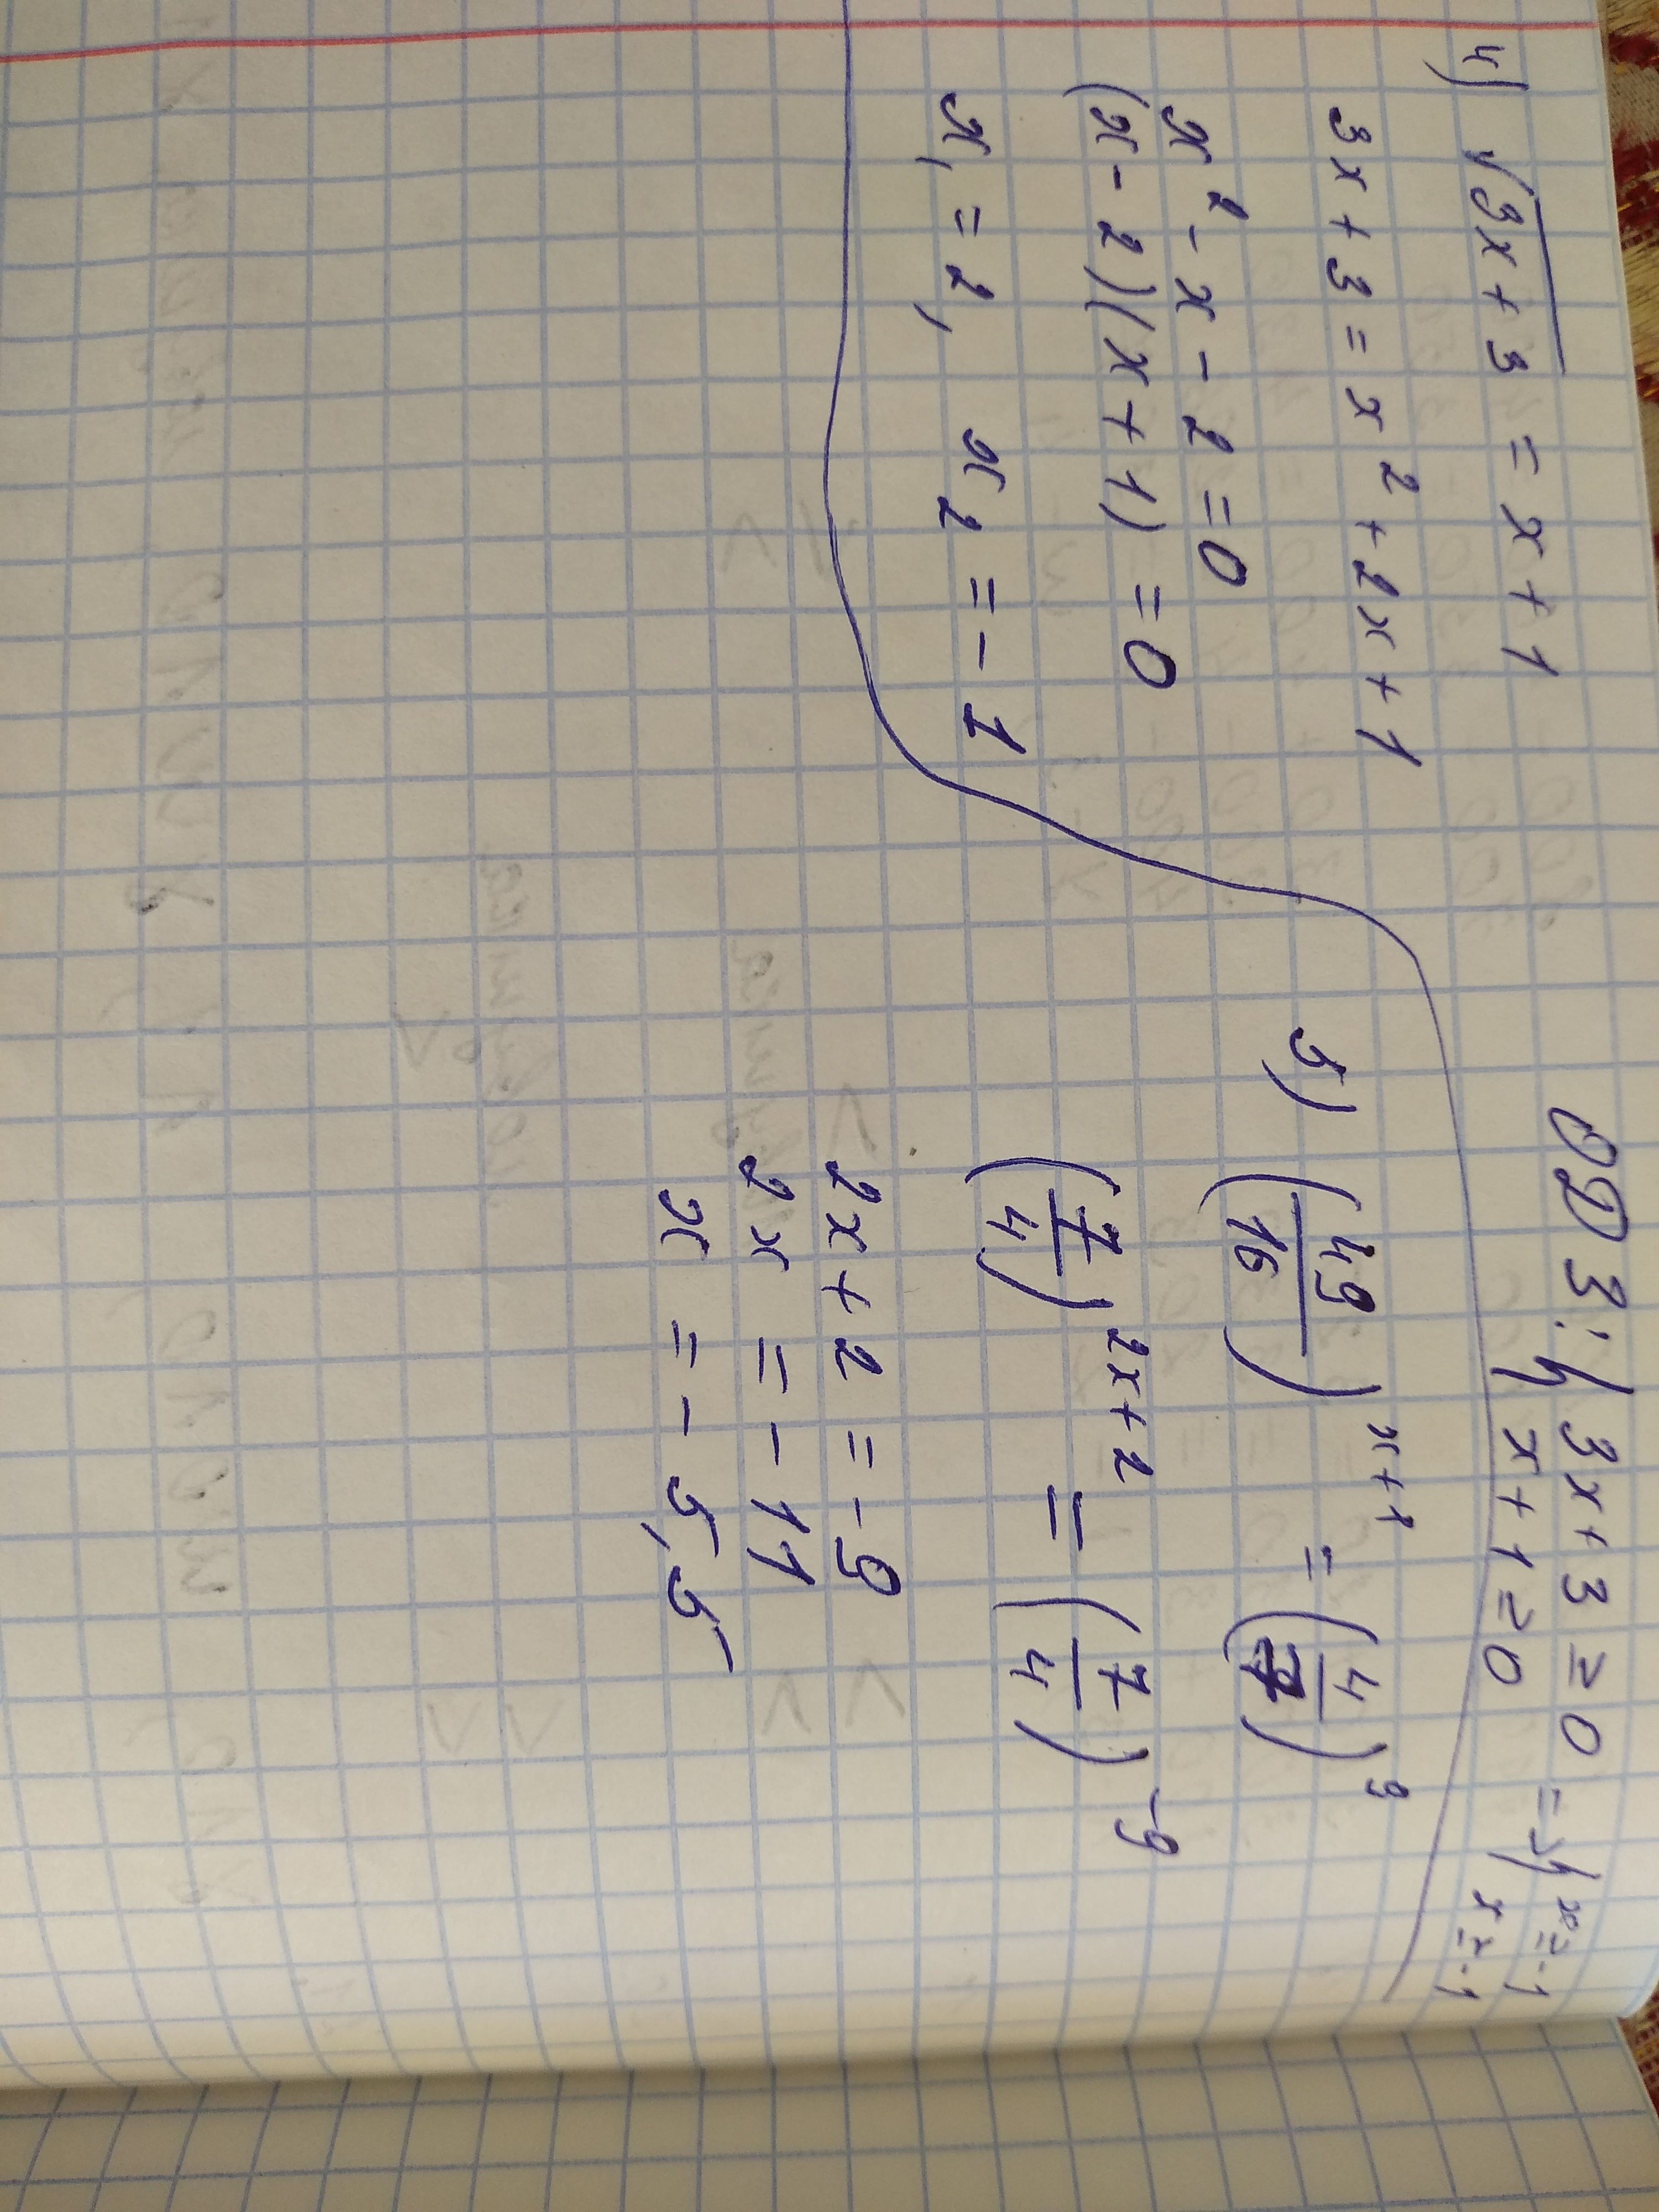 4) √3x + 3 = x + 1
3x + 3 = x² + 2x + 1
x² - x - 2 = 0
(x - 2)(x + 1) = 0
x₁ = 2, x₂ = -1
ОДЗ: { 3x + 3 ≥ 0 => { x ≥ -1
x + 1 ≥ 0 x ≥ -1
5) (49/16)^x+1 = (4/7)^9
(7/4)^2x+2 = (7/4)^-9
2x + 2 = -9
2x = -11
x = -5,5